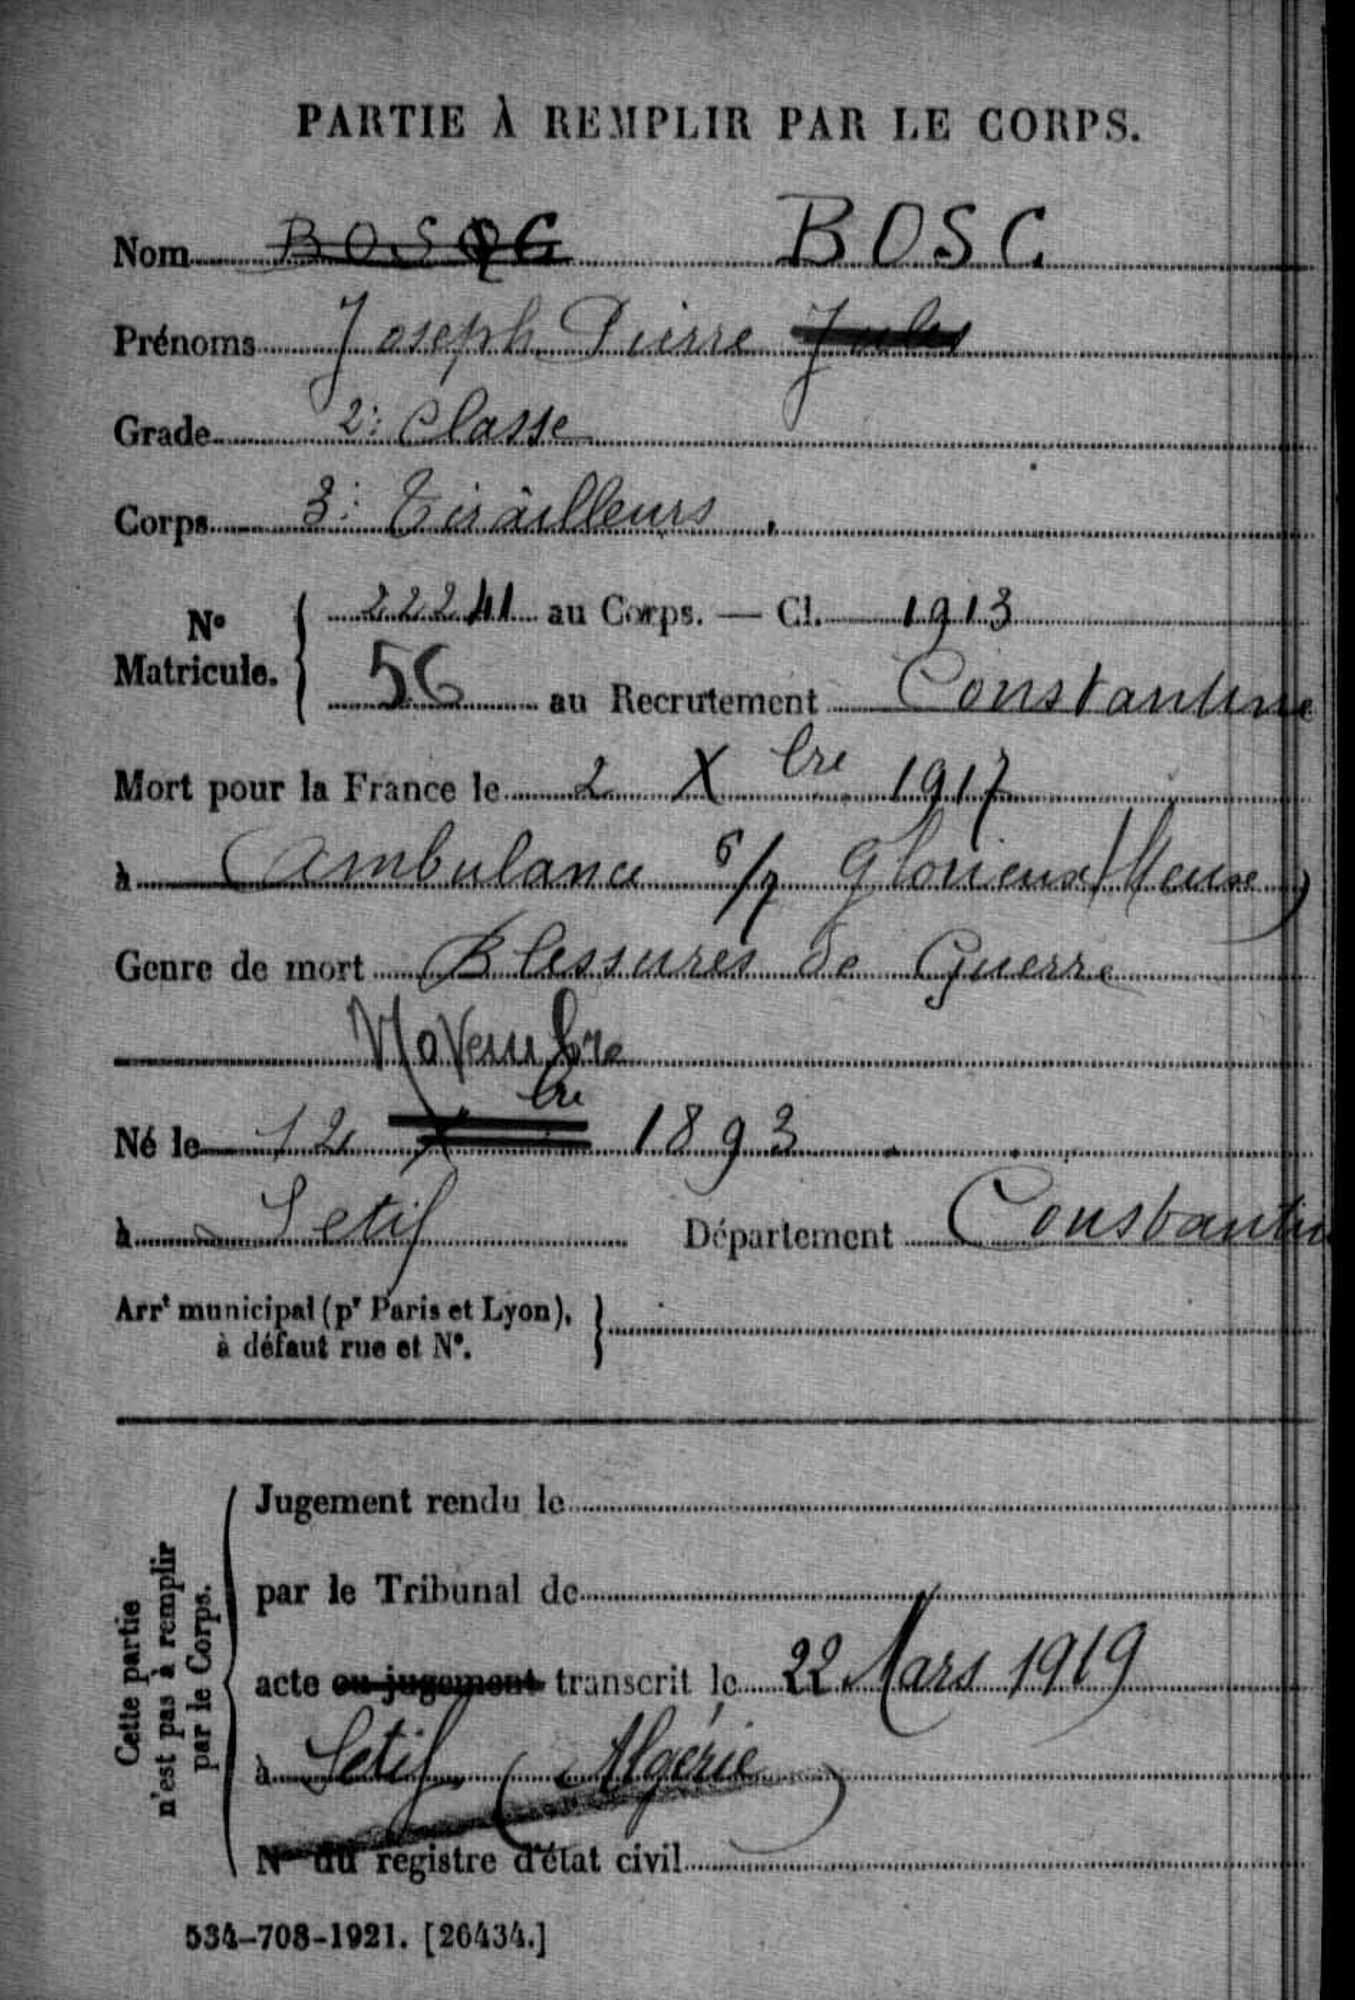 PARTIE À REMPLIR PAR LE CORPS.
Nom BOSQC BOSC
Prénoms Joseph Pierre Jules
Grade 2e Classe
Corps 3e Tirailleurs
No Matricule. 22241 au Corps. — Cl. 1913
56 au Recrutement Constantine
Mort pour la France le 2 Xbre 1917
à Ambulance 6/7 Glorieux (Meuse)
Genre de mort Blessures de Guerre
Novembre
Né le 12 Xbre 1893
à Setif Département Constantin
Arrt municipal (pr Paris et Lyon),
à défaut rue et No.
Cette partie
n'est pas à remplir
par le Corps.
Jugement rendu le
par le Tribunal de
acte ou jugement transcrit le 22 Mars 1919
à Setif (Algérie)
No du registre d'état civil
534-708-1921. [26434.]